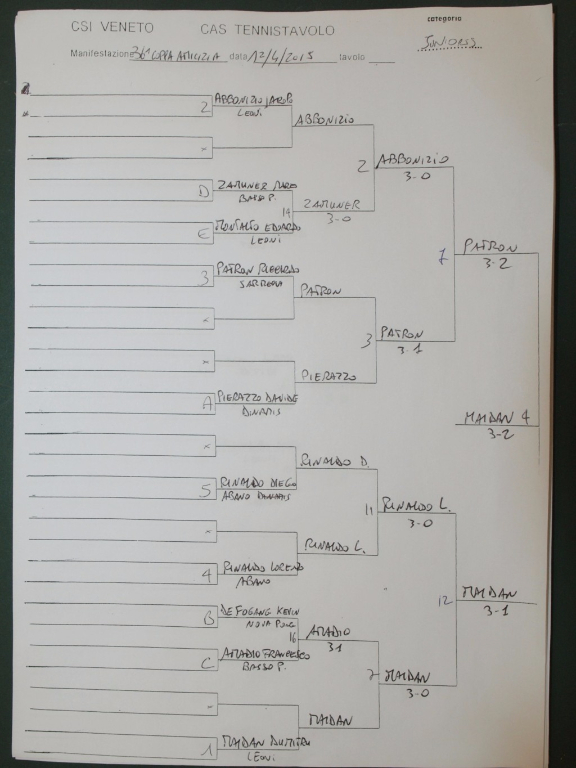 CSI VENETO CAS TENNISTAVOLO
categoria
JUNIORES
Manifestazione 36ª COPPA AMICIZIA data 12/4/2015 tavolo
2 ABBONIZIO JARO P.
LEONI
ABBONIZIO
2 ABBONIZIO
3-0
D ZAMUNER MARCO
BASSO P.
14 ZAMUNER
3-0
E MONTALTO EDOARDO
LEONI
7 PATRON
3-2
3 PATRON RICCARDO
SARMEOLA
PATRON
3 PATRON
3-1
PIERAZZO
A PIERAZZO DAVIDE
DINAMIS
MAIDAN 4
3-2
RINALDO D.
5 RINALDO DIEGO
ABANO DINAMIS
11 RINALDO L.
3-0
RINALDO L.
4 RINALDO LORENZO
ABANO
12 MAIDAN
3-1
B DE FOGANG KEVIN
NOVA PONG
16 AMADIO
31
C AMADIO FRANCESCO
BASSO P.
7 MAIDAN
3-0
MAIDAN
1 MAIDAN DUMITRU
LEONI